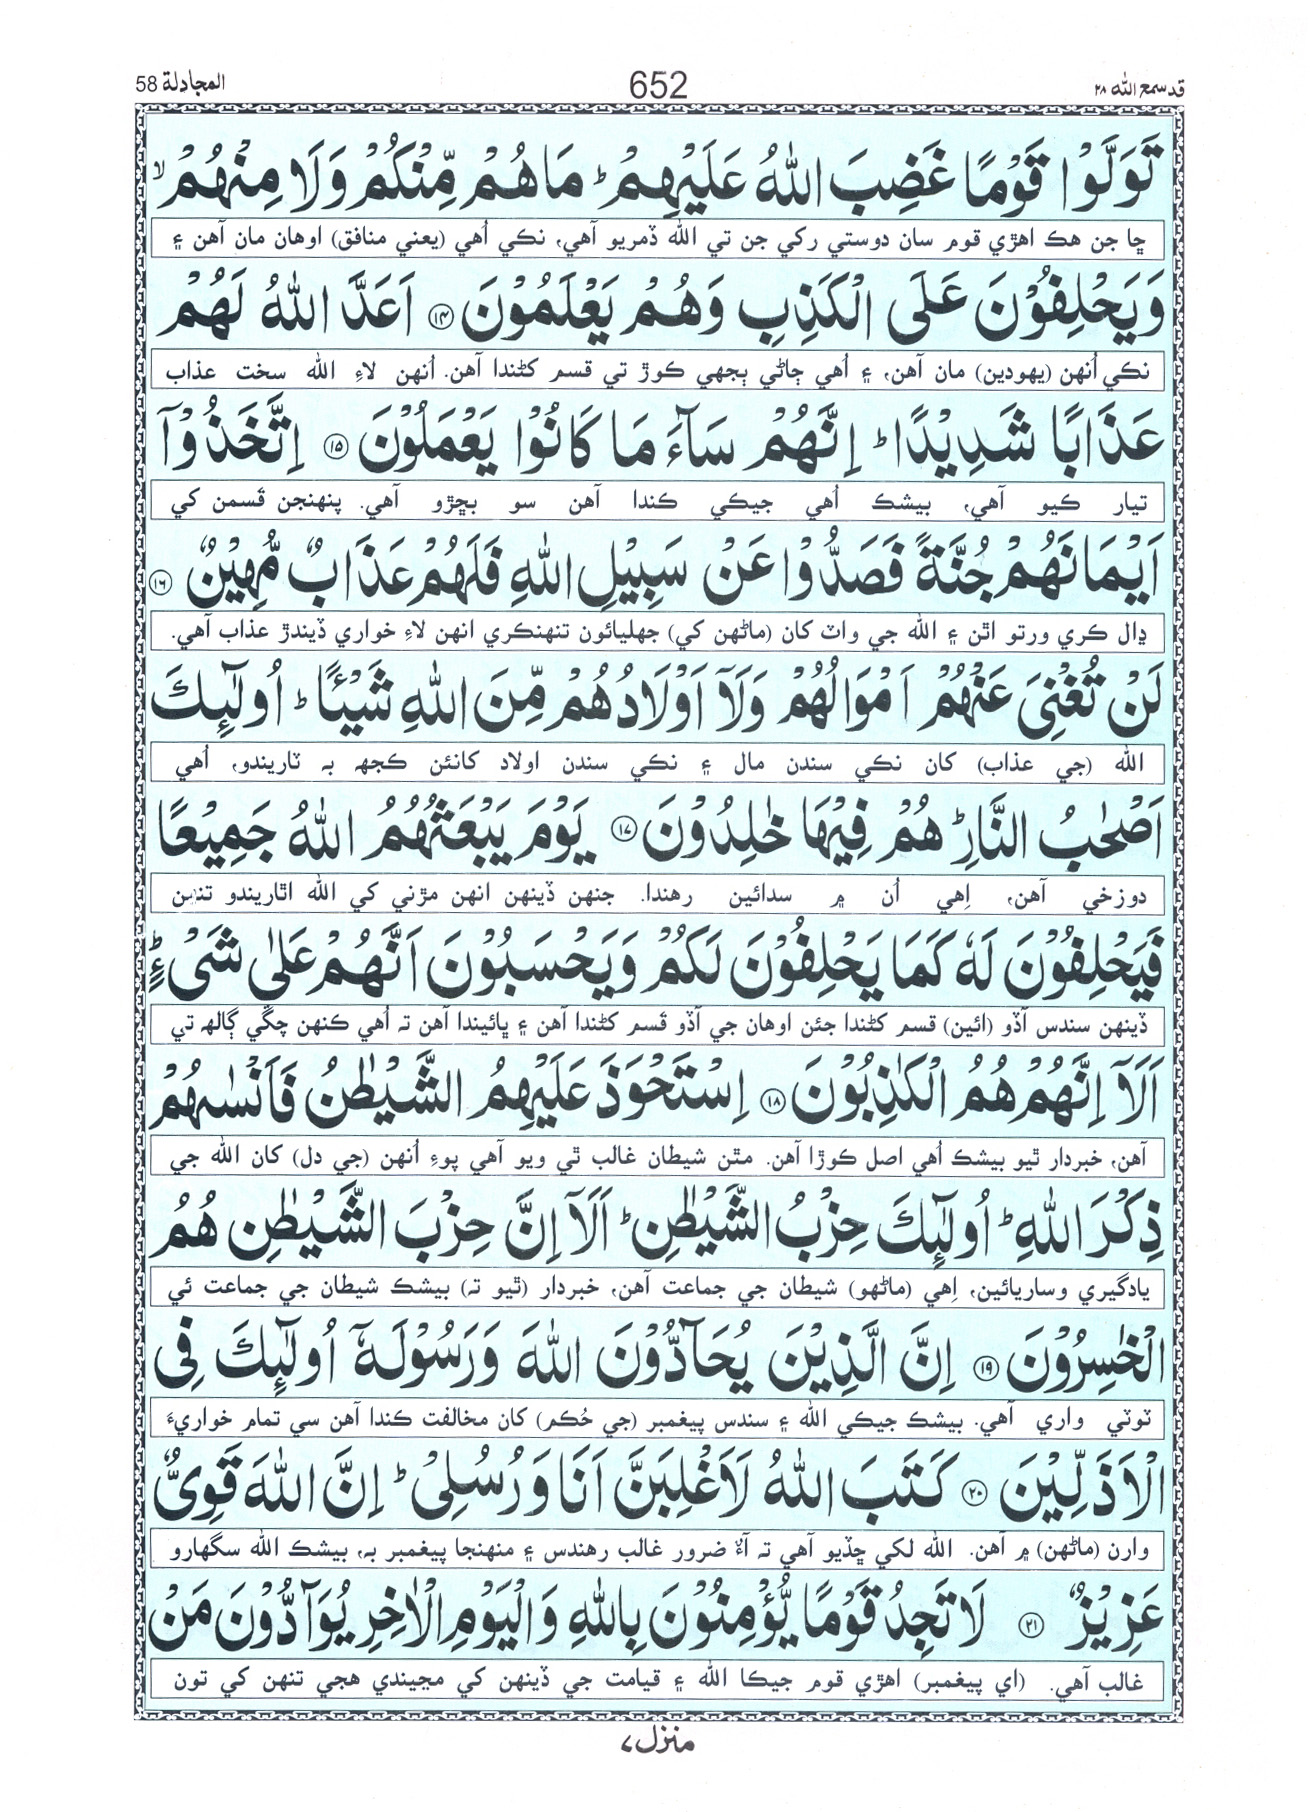 قد سمع الله ٢٨
652
المجادلة 58
تَوَلَّوْا قَوْمًا غَضِبَ اللّٰهُ عَلَيْهِمْ ؕ مَا هُمْ مِّنْكُمْ وَلَا مِنْهُمْ ۙ
ڇا جن هڪ اهڙي قوم سان دوستي رکي جن تي الله ڏمريو آهي، نڪي اُهي (يعني منافق) اوهان مان آهن ۽
وَيَحْلِفُوْنَ عَلَى الْكَذِبِ وَهُمْ يَعْلَمُوْنَ ﴿۱۴﴾ اَعَدَّ اللّٰهُ لَهُمْ
نڪي اُنهن (يهودين) مان آهن، ۽ اُهي ڄاڻي ٻجهي ڪوڙ تي قسم کڻندا آهن. اُنهن لاءِ الله سخت عذاب
عَذَابًا شَدِيْدًا ؕ اِنَّهُمْ سَآءَ مَا كَانُوْا يَعْمَلُوْنَ ﴿۱۵﴾ اِتَّخَذُوْۤا
تيار ڪيو آهي، بيشڪ اُهي جيڪي ڪندا آهن سو بڇڙو آهي. پنهنجن قَسمن کي
اَيْمَانَهُمْ جُنَّةً فَصَدُّوْا عَنْ سَبِيْلِ اللّٰهِ فَلَهُمْ عَذَابٌ مُّهِيْنٌ ﴿۱۶﴾
ڍال ڪري ورتو اٿن ۽ الله جي واٽ کان (ماڻهن کي) جهليائون تنهنڪري انهن لاءِ خواري ڏيندڙ عذاب آهي.
لَنْ تُغْنِىَ عَنْهُمْ اَمْوَالُهُمْ وَلَاۤ اَوْلَادُهُمْ مِّنَ اللّٰهِ شَيْـًٔا ؕ اُولٰٓئِكَ
الله (جي عذاب) کان نڪي سندن مال ۽ نڪي سندن اولاد کانئن ڪجهہ بہ ٽاريندو، اُهي
اَصْحٰبُ النَّارِ ؕ هُمْ فِيْهَا خٰلِدُوْنَ ﴿۱۷﴾ يَوْمَ يَبْعَثُهُمُ اللّٰهُ جَمِيْعًا
دوزخي آهن، اِهي اُن ۾ سدائين رهندا. جنهن ڏينهن انهن مڙني کي الله اٿاريندو تنهن
فَيَحْلِفُوْنَ لَهٗ كَمَا يَحْلِفُوْنَ لَكُمْ وَيَحْسَبُوْنَ اَنَّهُمْ عَلٰى شَىْءٍ ؕ
ڏينهن سندس آڏو (ائين) قسم کڻندا جئن اوهان جي آڏو قَسم کڻندا آهن ۽ ڀائيندا آهن تہ اُهي ڪنهن چڱي ڳالهہ تي
اَلَاۤ اِنَّهُمْ هُمُ الْكٰذِبُوْنَ ﴿۱۸﴾ اِسْتَحْوَذَ عَلَيْهِمُ الشَّيْطٰنُ فَاَنْسٰىهُمْ
آهن، خبردار ٿيو بيشڪ اُهي اصل ڪوڙا آهن. مٿن شيطان غالب ٿي ويو آهي پوءِ اُنهن (جي دل) کان الله جي
ذِكْرَ اللّٰهِ ؕ اُولٰٓئِكَ حِزْبُ الشَّيْطٰنِ ؕ اَلَاۤ اِنَّ حِزْبَ الشَّيْطٰنِ هُمُ
يادگيري وساريائين، اِهي (ماڻهو) شيطان جي جماعت آهن، خبردار (ٿيو تہ) بيشڪ شيطان جي جماعت ئي
الْخٰسِرُوْنَ ﴿۱۹﴾ اِنَّ الَّذِيْنَ يُحَآدُّوْنَ اللّٰهَ وَرَسُوْلَهٗۤ اُولٰٓئِكَ فِى
ٽوٽي واري آهي. بيشڪ جيڪي الله ۽ سندس پيغمبر (جي حُڪم) کان مخالفت ڪندا آهن سي تمام خواريءَ
الْاَذَلِّيْنَ ﴿۲۰﴾ كَتَبَ اللّٰهُ لَاَغْلِبَنَّ اَنَا وَرُسُلِىْ ؕ اِنَّ اللّٰهَ قَوِىٌّ
وارن (ماڻهن) ۾ آهن. الله لکي ڇڏيو آهي تہ آءٌ ضرور غالب رهندس ۽ منهنجا پيغمبر بہ، بيشڪ الله سگهارو
عَزِيْزٌ ﴿۲۱﴾ لَا تَجِدُ قَوْمًا يُّؤْمِنُوْنَ بِاللّٰهِ وَالْيَوْمِ الْاٰخِرِ يُوَآدُّوْنَ مَنْ
غالب آهي. (اي پيغمبر) اهڙي قوم جيڪا الله ۽ قيامت جي ڏينهن کي مڃيندي هجي تنهن کي تون
منزل ۷